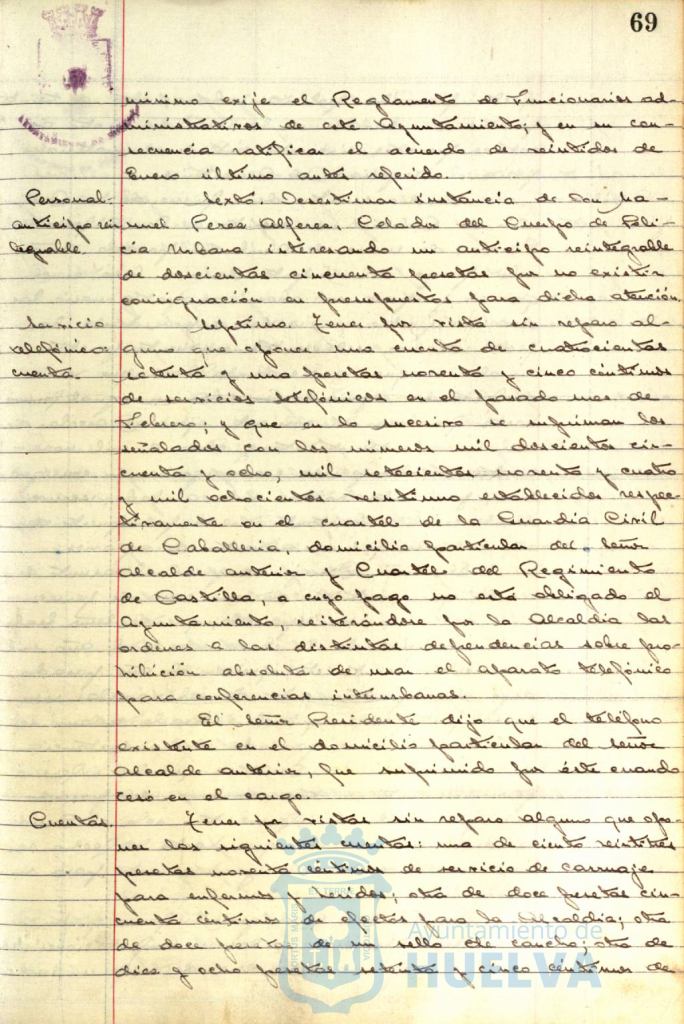 69
mínimo exije el Reglamento de Funcionarios ad-
ministrativos de este Ayuntamiento; y en su con-
secuencia ratificar el acuerdo de veintidos de
Enero último antes referido.
Personal-
anticipo rein
tegrable.
Sexto. Desestimar instancia de Don Ma-
nuel Perea Alferea, Celador del Cuerpo de Poli-
cia Urbana interesando un anticipo reintegrable
de doscientas cincuenta pesetas por no existir
consignación en presupuestos para dicha atención.
Servicio
telefónico-
cuenta.
Septimo. Tener por vista sin reparo al-
guno que oponer una cuenta de cuatrocientas
setenta y una pesetas noventa y cinco céntimos
de servicios telefónicos en el pasado mes de
Febrero; y que en lo sucesivo se supriman los
señalados con los números mil doscientos cin-
cuenta y ocho, mil setecientos noventa y cuatro
y mil ochocientos veintiuno establecidos respec-
tivamente en el cuartel de la Guardia Civil
de Caballeria, domicilio particular del Señor
Alcalde anterior y Cuartel del Regimiento
de Castilla, a cuyo pago no está obligado el
Ayuntamiento, reiterándose por la Alcaldia las
ordenes a las distintas dependencias sobre pro-
hibición absoluta de usar el aparato telefónico
para conferencias interurbanas.
El Señor Presidente dijo que el teléfono
existente en el domicilio particular del Señor
Alcalde anterior, fue suprimido por éste cuando
cesó en el cargo.
Cuentas.
Tener por vistas sin reparo alguno que opo-
ner las siguientes cuentas: una de ciento veintitres
pesetas noventa céntimos de servicio de carruaje
para enfermos y heridos; otra de doce pesetas cin-
cuenta céntimos de efectos para la Alcaldia; otra
de doce pesetas de un sello de caucho; otra de
diez y ocho pesetas setenta y cinco céntimos de
Ayuntamiento de
HUELVA